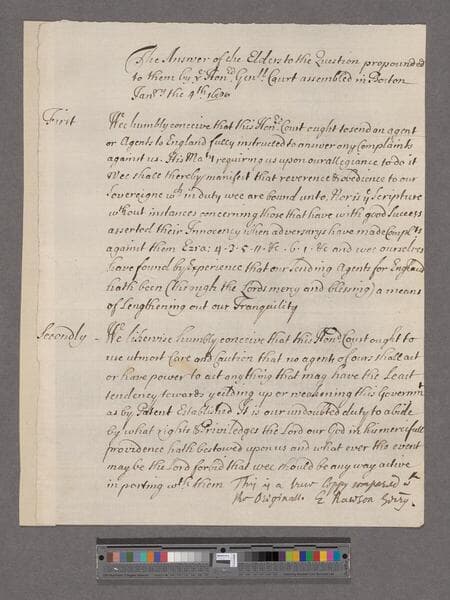 The Answer of the Elders to the Question propounded
to them by ye Honrd Genll Court assembled in Boston
Janry the 4th 1680
First We humbly conceive that this Honrd Court ought to send an agent
or Agents to England fully instructed to answer any Complaints
against us. His Maty requiring us upon our allegiance to do it
Wee shall thereby manifest that reverence & obedience to our
Sovereigne wch in duty wee are bound unto, Nor is ye Scripture
wthout instances concerning those that have with good success
asserted their Innocency when adversarys have made Complts
against them Ezra: 4. 3. 5. 11 &c. 6. 1. &c and wee ourselves
have found by Experience that our sending Agents for England
hath been (through the Lords mercy and blessing) a means
of Lengthening out our Tranquility
Secondly - We likewise humbly conceive that this Honrd Court ought to
use utmost Care and Caution that no agent of ours shall act
or have power to act any thing that may have the Least
tendency towards yeilding up or weakening this Governmt
as by Patent Established It is our undoubted duty to abide
by what rights & Priviledges the Lord our God in his mercifull
providence hath bestowed upon us and what ever the event
may be the Lord forbid that wee should be any way active
in parting wth them This is a true Coppy compared wth
the Originall. E Rawson Secrty.